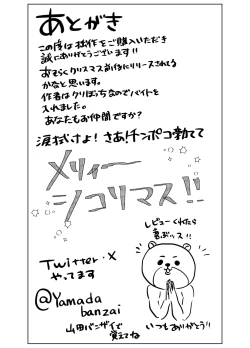 あとがき
この度は拙作をご購入いただき
誠にありがとうございます!!
おそらくクリスマス前後にリリースされてる
かなと思います。
作者はクリぼっちなのでバイトを
入れました。
あなたもお仲間ですか?
涙拭けよ! さあ!チンポコ勃てて
メリィー
シコリマス!!
レビューくれたら
喜ぶッス!!
Twitter・X
やってます
@Yamada
banzai
山田バンザイで
覚えてね
いつもありがとう!!